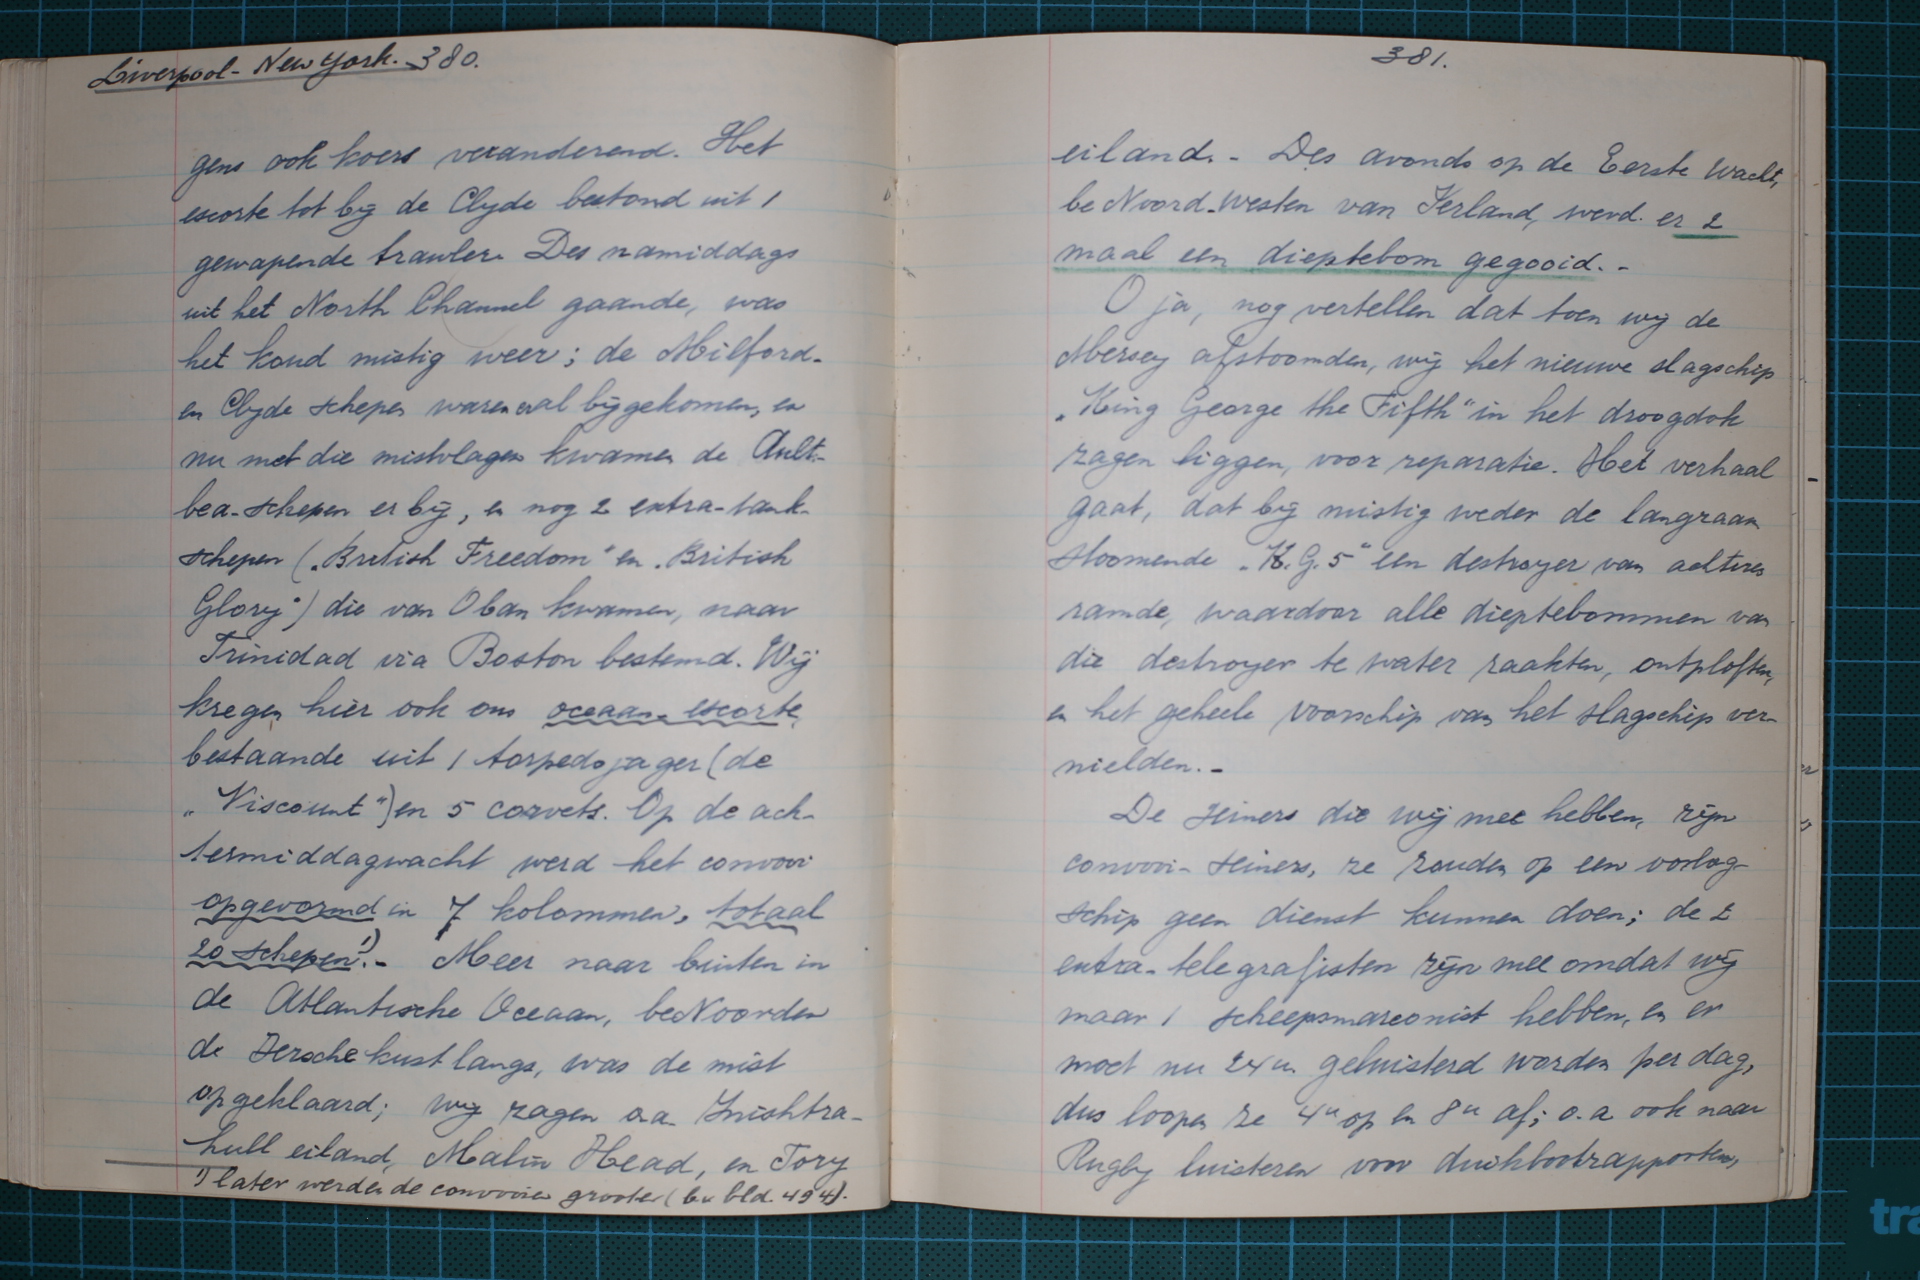 Liverpool - New York. 380.
gens ook koers veranderend. Het
escorte tot bij de Clyde bestond uit 1
gewapende trawler. Des namiddags
uit het North Channel gaande, was
het koud mistig weer; de Milford-
en Clyde schepen waren er al bijgekomen, en
nu met die mistvlagen kwamen de Ault-
bea-schepen er bij, en nog 2 extra-tank-
schepen („British Freedom" en „British
Glory") die van Oban kwamen, naar
Trinidad via Boston bestemd. Wij
kregen hier ook ons oceaan-escorte,
bestaande uit 1 torpedojager (de
„Viscount") en 5 corvets. Op de ach-
termiddagwacht werd het convooi
opgevormd in 7 kolommen, totaal
20 schepen.¹) - Meer naar buiten in
de Atlantische Oceaan, beNoorden
de Iersche kust langs, was de mist
opgeklaard; wij zagen o.a. Inishtra-
hull eiland, Malin Head, en Tory
¹) later werden de convooien grooter (bv bld. 494).
381.
eiland. - Des avonds op de Eerste Wacht,
be Noord-Westen van Ierland, werd er 2
maal een dieptebom gegooid. -
O ja, nog vertellen dat toen wij de
Mersey afstoomden, wij het nieuwe slagschip
„King George the Fifth" in het droogdok
zagen liggen, voor reparatie. Het verhaal
gaat, dat bij mistig weder de langzaam
stoomende „K.G.5" een destroyer van achteren
ramde, waardoor alle dieptebommen van
die destroyer te water raakten, ontploften,
en het geheele voorschip van het slagschip ver-
nielden. -
De seiners die wij mee hebben, zijn
convooi-seiners, ze zouden op een oorlog-
schip geen dienst kunnen doen; de 2
extra-telegrafisten zijn mee omdat wij
maar 1 scheepsmarconist hebben, en er
moet nu 24 u. geluisterd worden per dag,
dus loopen ze 4u op en 8u af; o.a. ook naar
Rugby luisteren voor duikbootrapporten,
tra